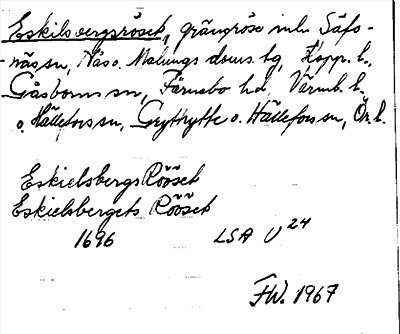 Eskilsbergsröset, gränsröse mln Säfs-
näs sn, Nås o. Malungs doms. tg, Kopp. l.,
Gåsborns sn, Färnebo hd, Värml. l.
o. Hällefors sn, Grythytte o. Hällefors sn, Ör. l.
Eskielsbergs Rööset
Eskielsbergets Rööset
1696 LSA U 24
FW. 1967